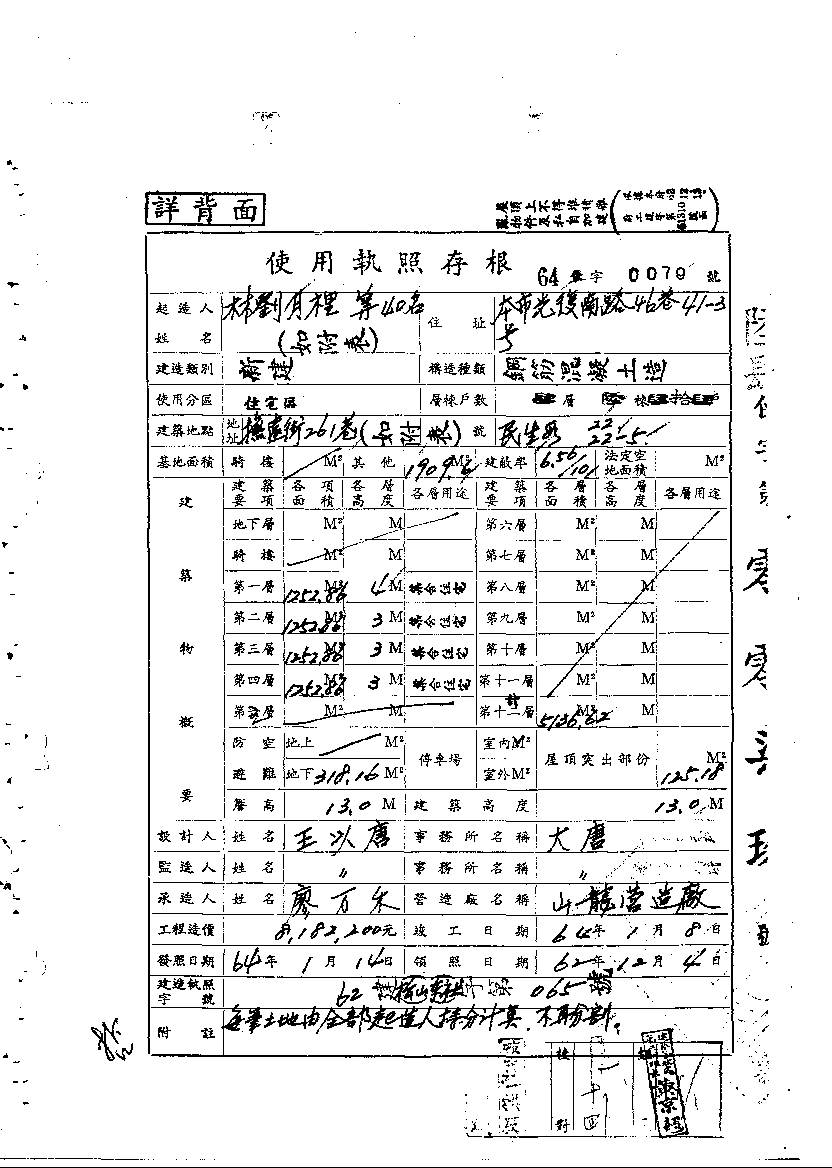 詳背面
屋頂上不得堆積雜
物件及私自加建
使用執照存根
64 字 0079 號
起造人姓名 林劉月裡 等40名 (如附表) 住址 本市光復南路46巷41-3號
建造類別 新建 構造種類 鋼筋混凝土造
使用分區 住宅區 層棟戶數 層 棟
建築地點 地址 撫遠街261巷(如附表)號 民生段 221 22-5
基地面積 騎樓 M² 其他 M² 建蔽率 6.56/101 法定空地面積 M²
建築物概要 建築要項 各項面積 各層高度 各層用途 建築要項 各層面積 各層高度 各層用途
地下層 M² M 第六層 M² M
騎樓 M² M 第七層 M² M
第一層 1252.86 M² 4 M 集合住宅 第八層 M² M
第二層 1252.86 M² 3 M 集合住宅 第九層 M² M
第三層 1252.86 M² 3 M 集合住宅 第十層 M² M
第四層 1252.86 M² 3 M 集合住宅 第十一層 M² M
第五層 M² M 第十二層 計 5136.62 M² M
防空避難 地上 M² 停車場 室內M² 屋頂突出部份 M²
地下 318.16 M² 室外M² 125.18
簷高 13.0 M 建築高度 13.0 M
設計人 姓名 王以唐 事務所名稱 大唐
監造人 姓名 〃 事務所名稱 〃
承造人 姓名 廖万朱 營造廠名稱 山龍營造廠
工程造價 8,182,200元 竣工日期 64年1月8日
發照日期 64年1月14日 領照日期 62年12月4日
建造執照字號 62 建 字第 065 號
附註 每筆土地由全部起造人持分計算,不再分割。
校對